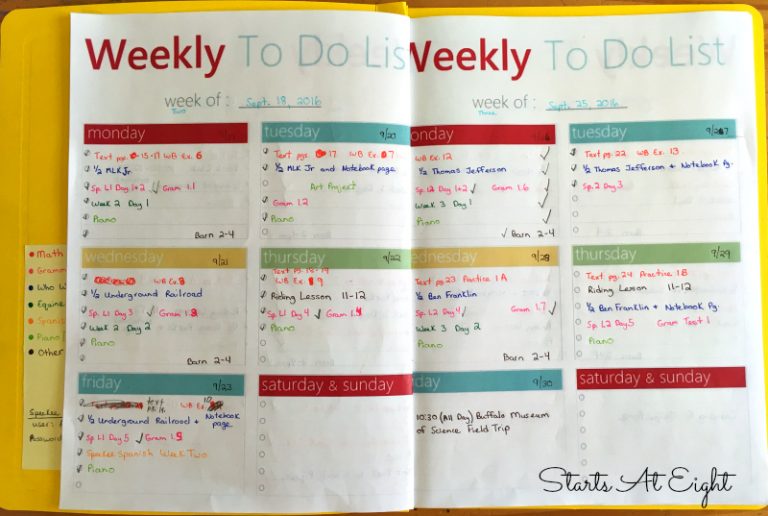 Weekly To Do Lis
week of : Sept. 18, 2016
Two
monday
Text pgs. 15-17 WB Ex. 6
1/2 MLK Jr
Sp. L1 Day 1+2 ✓ Gram 1.1
Week 2 Day 1
Piano
Barn 2-4
tuesday 9/20
Text pgs. 17 WB Ex. 7
1/2 MLK Jr and Notebook page
Art Project
Gram 1.2
Piano
wednesday 9/21
WB Ex. 8
1/2 Underground Railroad
Sp. L1 Day 3 ✓ Gram 1.3
Week 2 Day 2
Piano
Barn 2-4
thursday 9/22
Text pg. 18-19
WB Ex. 9
Riding Lesson 11-12
Sp. L1 Day 4 ✓ Gram 1.4
Piano
friday 9/23
text
WB Ex. 10
1/2 Underground Railroad + Notebook
page
Sp. L1 Day 5 ✓ Gram 1.5
Speekee Spanish Week Two
Piano
saturday & sunday
Weekly To Do List
week of : Sept. 25, 2016
Three
onday
WB Ex. 12 ✓
1/2 Thomas Jefferson ✓
Sp. L2 Day 1+2 ✓ Gram 1.6 ✓
Week 3 Day 1 ✓
Piano ✓
✓ Barn 2-4
tuesday
Text pg. 22 WB Ex. 13
1/2 Thomas Jefferson + Notebook Pg.
Sp. 2 Day 3
ednesday 9/28
Text pg 23 Practice 1A
1/2 Ben Franklin
Sp. L2 Day 4 ✓ Gram 1.7 ✓
Week 3 Day 2
Piano
Barn 2-4
thursday 9/29
Text pg. 24 Practice 1B
Riding Lesson 11-12
1/2 Ben Franklin + Notebook Pg.
Sp. L2 Day 5 Gram Test 1
Piano
day 9/30
10:30 (All Day) Buffalo Museum
of Science Field Trip
saturday & sunday
Math
Gramm
Who W
Equine
Spanis
Piano
Other
Speekee
user:
Password
Starts At Eight